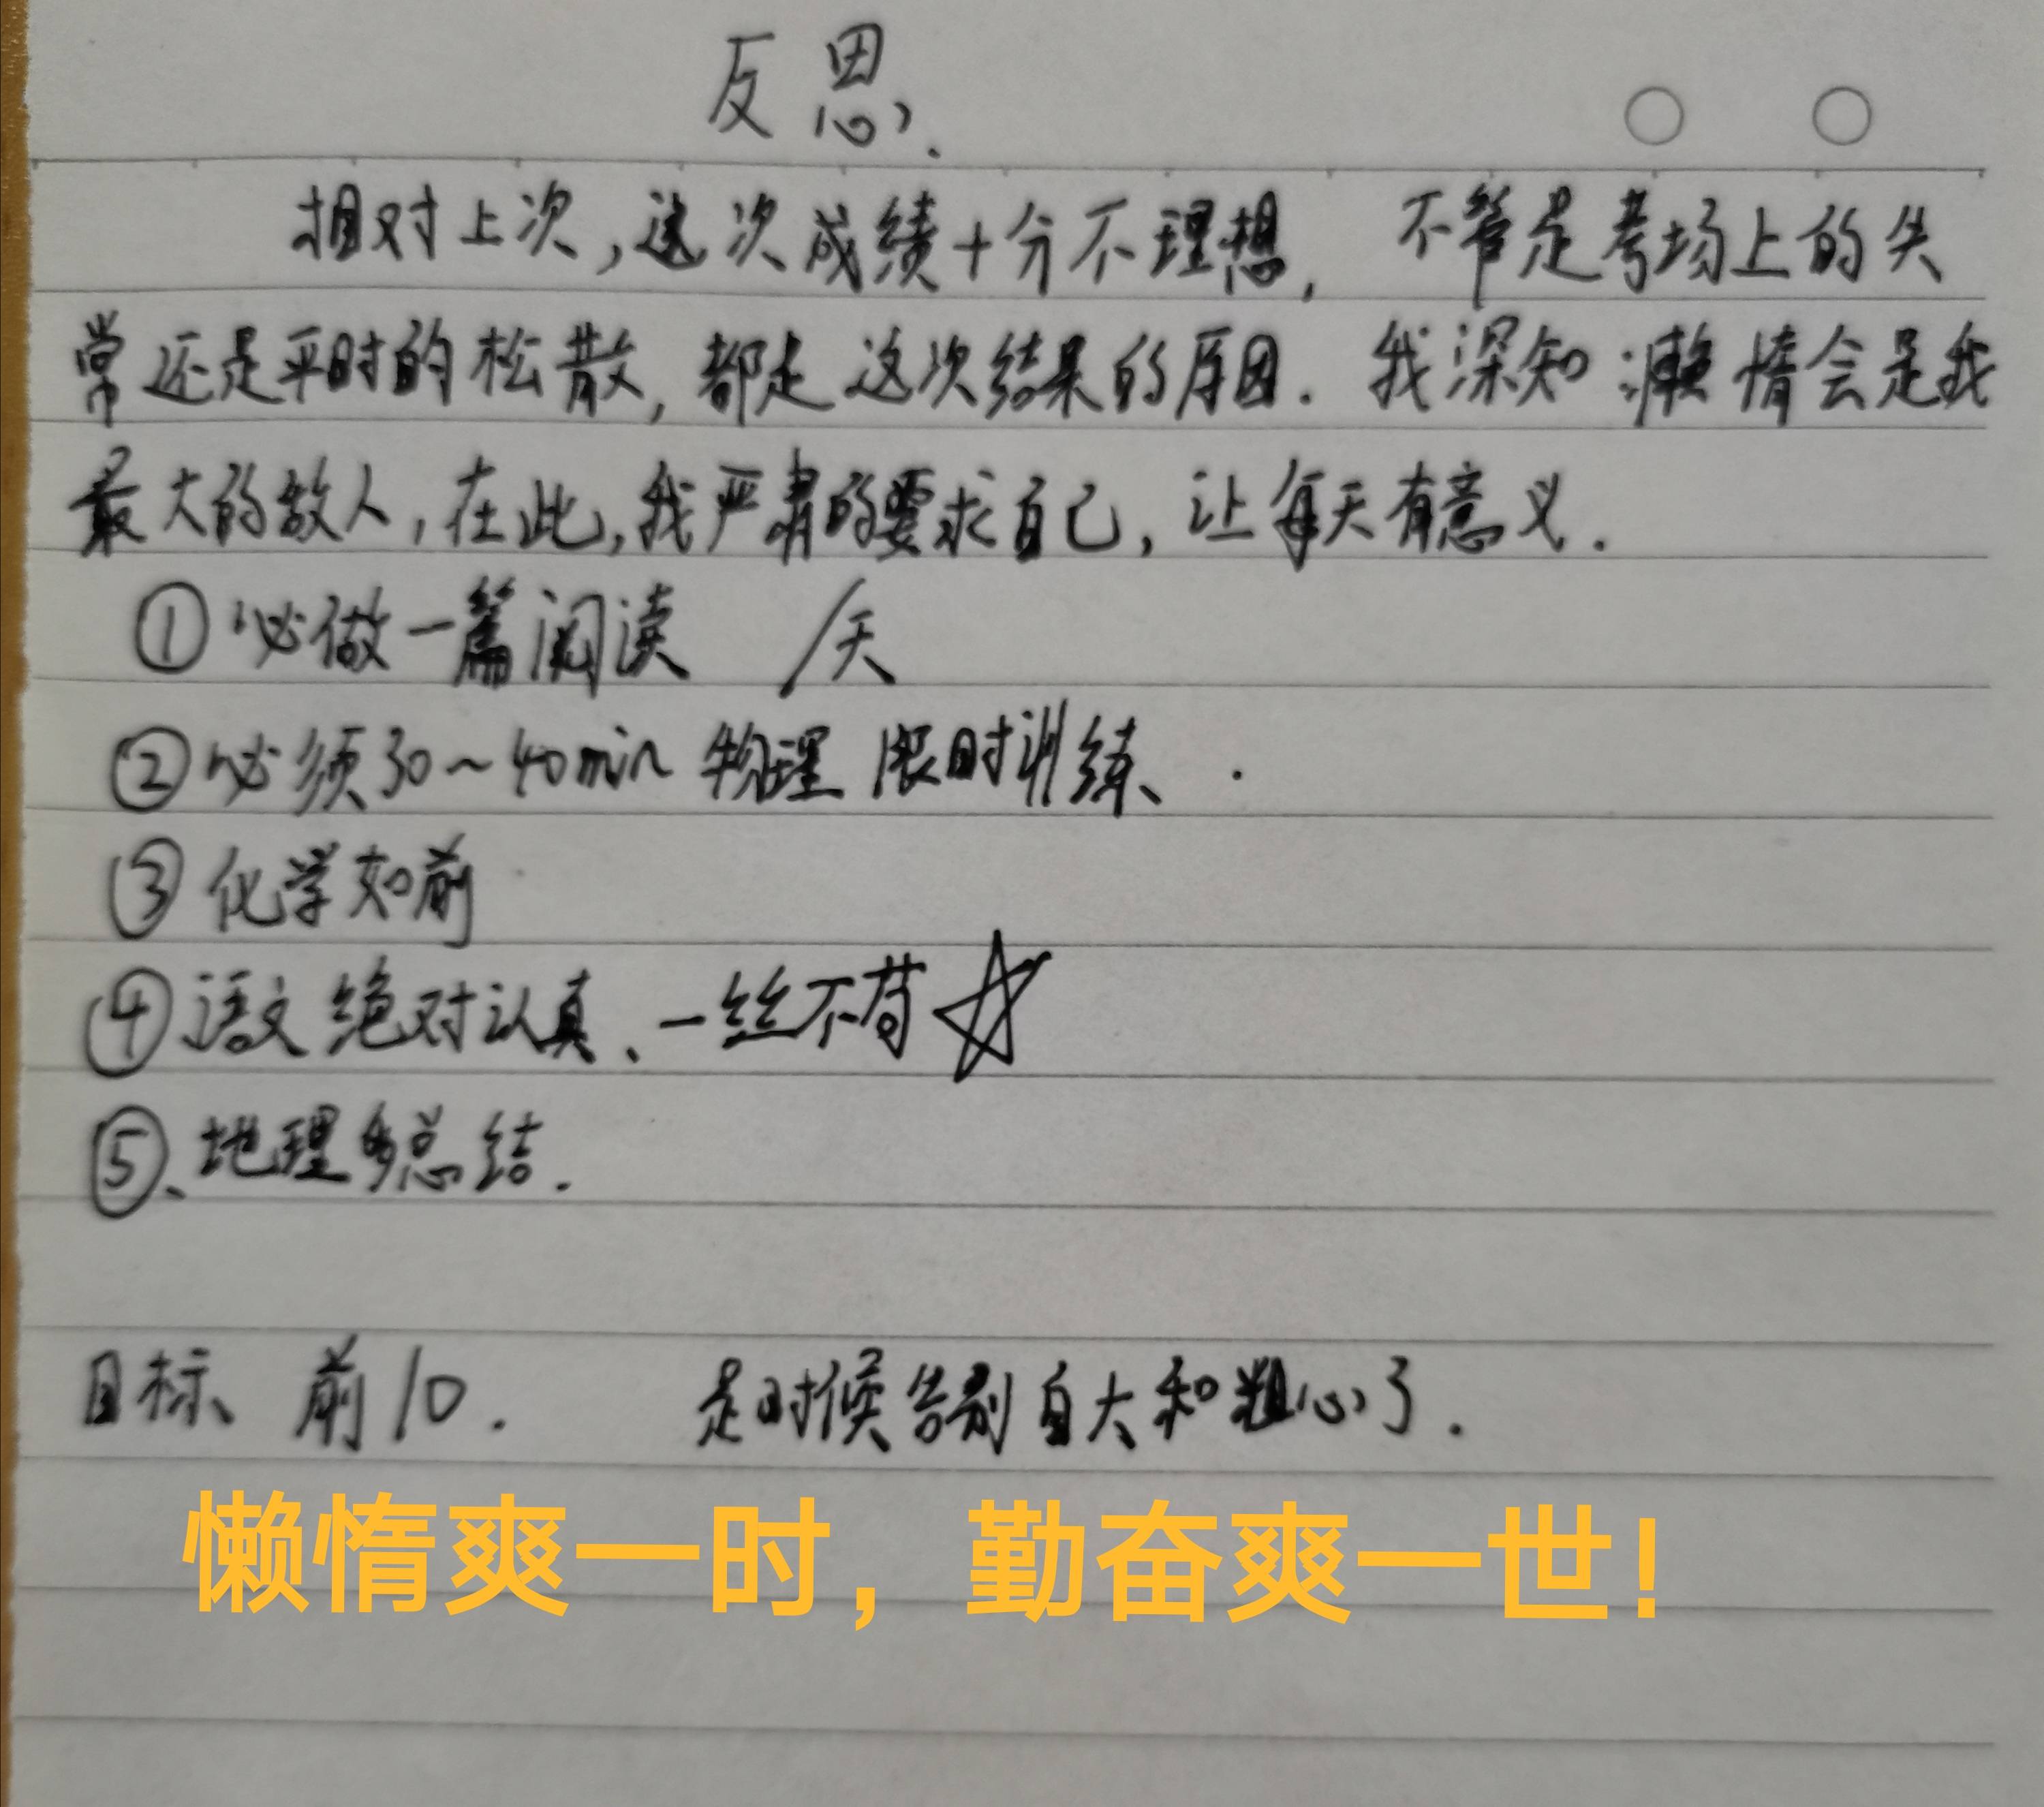 反思.
相对上次,这次成绩十分不理想, 不管是考场上的失
常还是平时的松散,都是这次结果的原因. 我深知懒惰会是我
最大的敌人,在此,我严肃的要求自己,让每天有意义.
①必做一篇阅读 /天
②必须30~40min 物理 限时训练.
③化学如前
④语文绝对认真、一丝不苟☆
⑤、地理多总结.
目标、前10. 是时候告别自大和粗心了.
懒惰爽一时，勤奋爽一世！